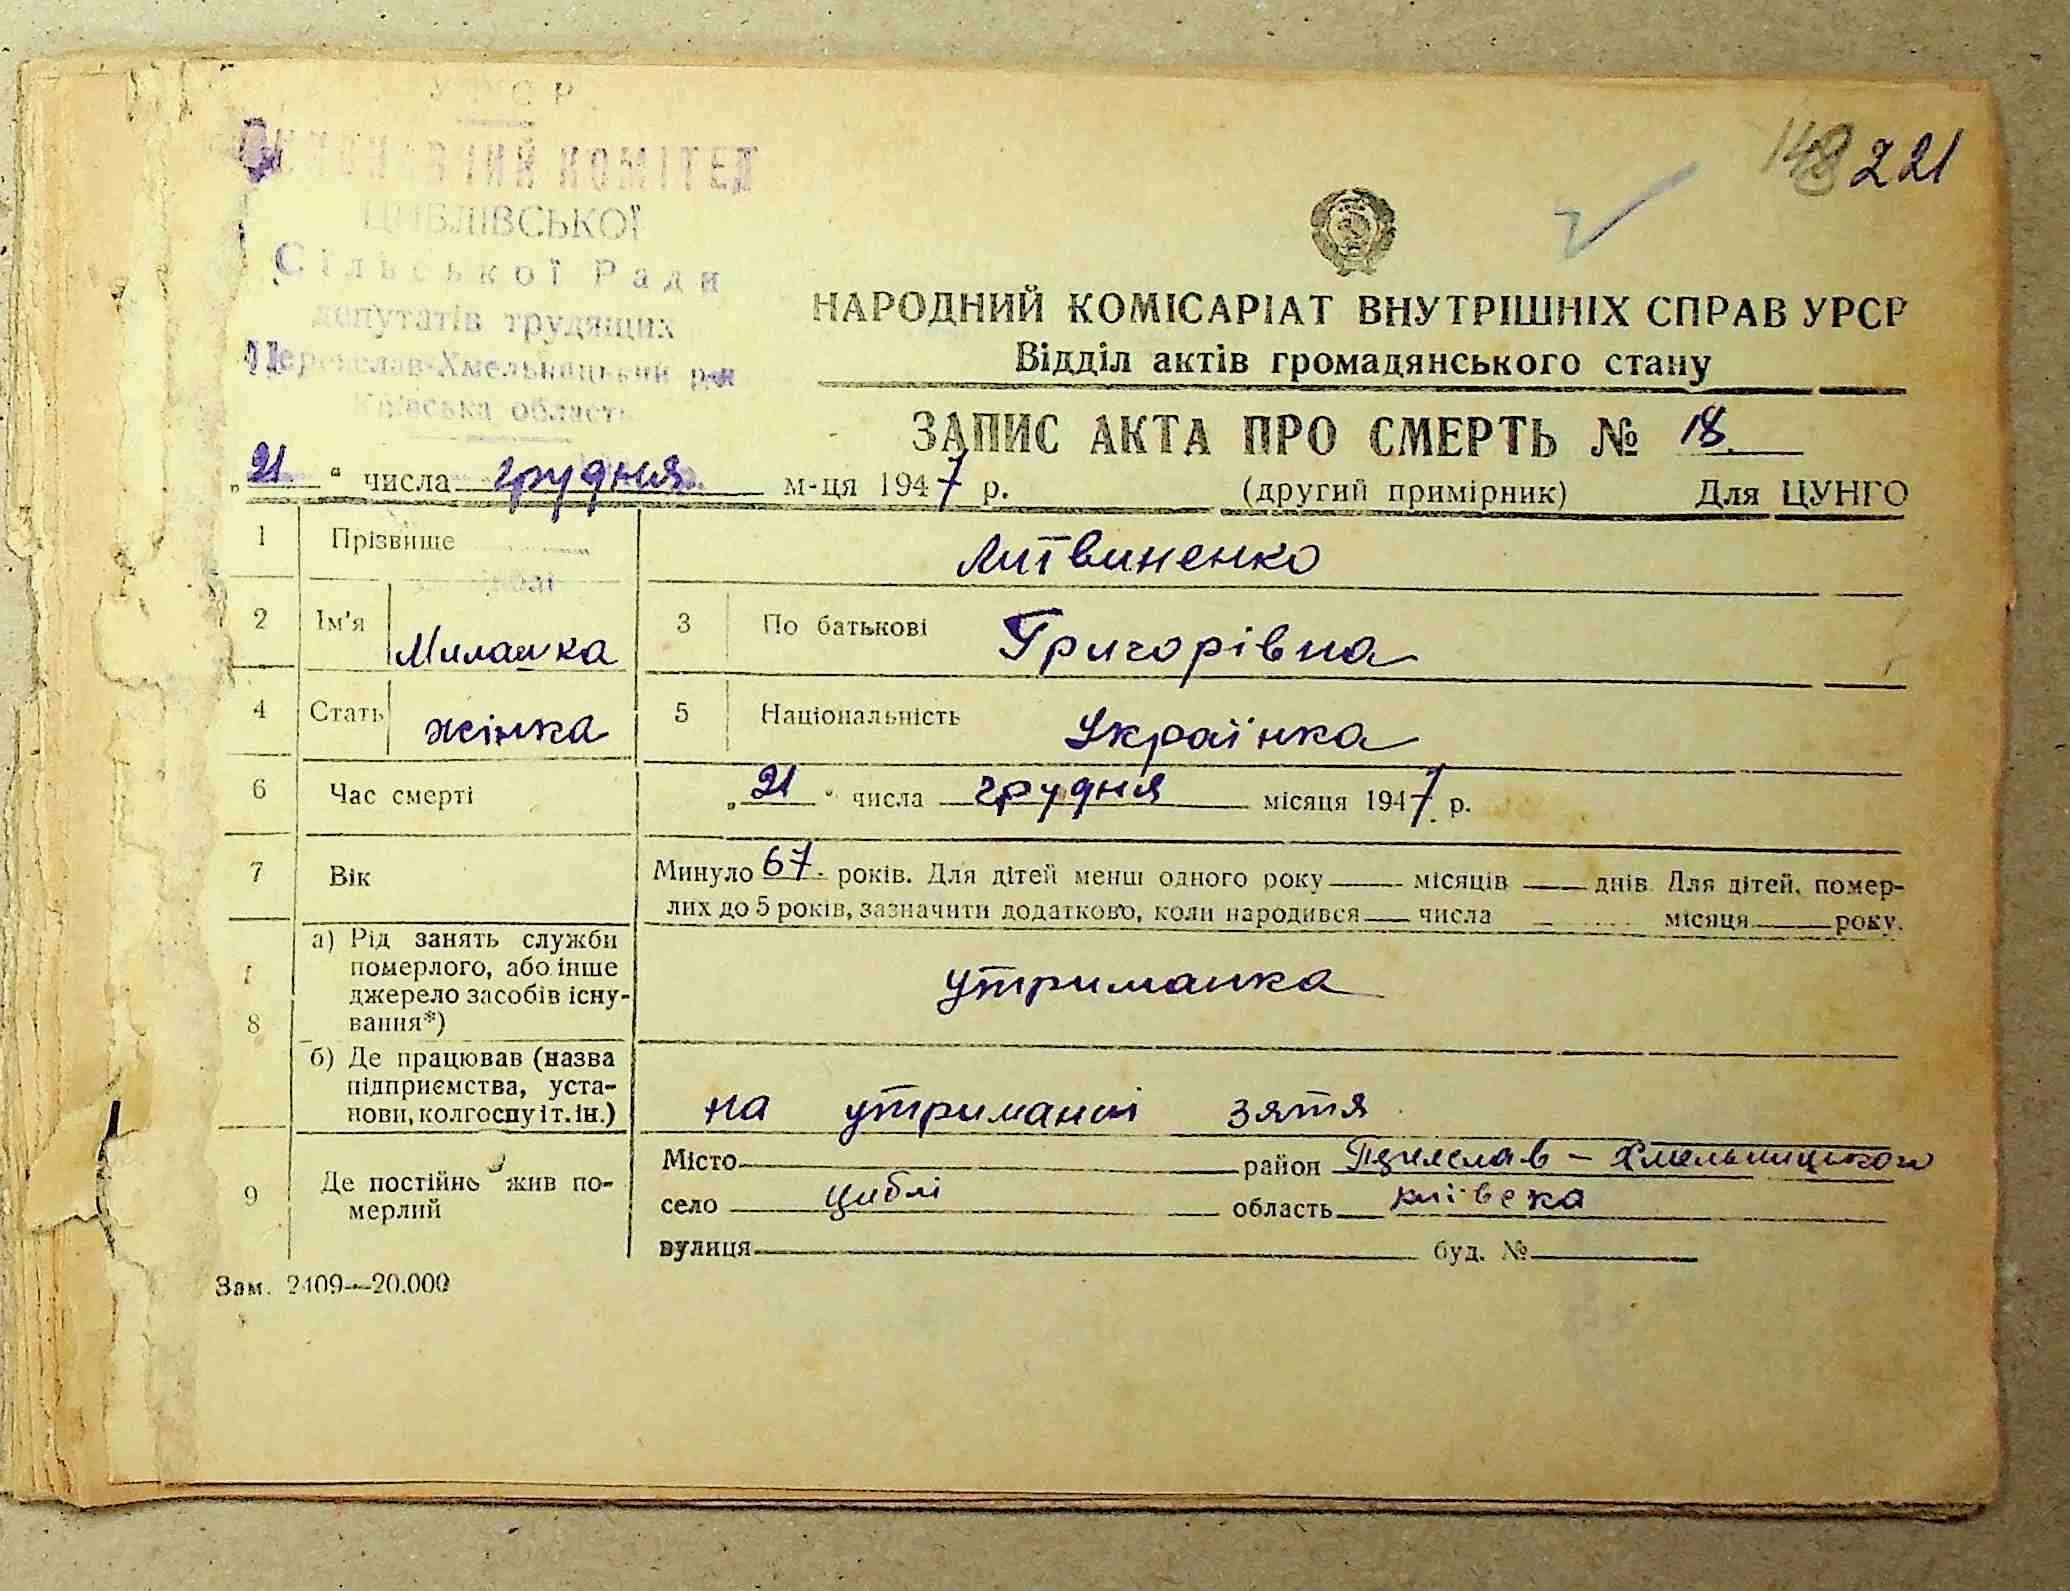 УРСР
ВИКОНАВЧИЙ КОМІТЕТ
ЦИБЛІВСЬКОЇ
Сільської Ради
депутатів трудящих
Переяслав-Хмельницький р-н
Київська область
221
НАРОДНИЙ КОМІСАРІАТ ВНУТРІШНІХ СПРАВ УРСР
Відділ актів громадянського стану
ЗАПИС АКТА ПРО СМЕРТЬ № 18
„21“ числа грудня м-ця 1947 р. (другий примірник) Для ЦУНГО
1 Прізвище Литвиненко
2 Ім'я Милашка 3 По батькові Григорівна
4 Стать жінка 5 Національність Українка
6 Час смерті „21“ числа грудня місяця 1947 р.
7 Вік Минуло 67 років. Для дітей менш одного року місяців днів. Для дітей, помер-
лих до 5 років, зазначити додатково, коли народився числа місяця року.
8 а) Рід занять служби
померлого, або інше
джерело засобів існу-
вання*) утриманка
б) Де працював (назва
підприємства, уста-
нови, колгоспу і т. ін.) на утримані зятя
9 Де постійно жив по-
мерлий
Місто район Переяслав-Хмельницького
село Циблі область київська
вулиця буд. №
Зам. 2409—20.000